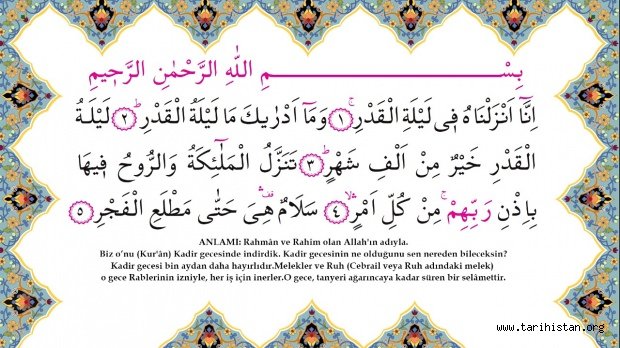 بِسْــــــــــــمِ اللّٰهِ الرَّحْمٰنِ الرَّح۪يمِ
اِنَّٓا اَنْزَلْنَاهُ ف۪ي لَيْلَةِ الْقَدْرِۚ ﴿١﴾ وَمَٓا اَدْرٰيكَ مَا لَيْلَةُ الْقَدْرِۜ ﴿٢﴾ لَيْلَةُ
الْقَدْرِ خَيْرٌ مِنْ اَلْفِ شَهْرٍۜ ﴿٣﴾ تَنَزَّلُ الْمَلٰٓئِكَةُ وَالرُّوحُ ف۪يهَا
بِاِذْنِ رَبِّهِمْۚ مِنْ كُلِّ اَمْرٍۙۛ ﴿٤﴾ سَلَامٌ۠ۛ هِيَ حَتّٰى مَطْلَعِ الْفَجْرِ ﴿٥﴾
ANLAMI: Rahmân ve Rahim olan Allah'ın adıyla.
Biz o'nu (Kur'ân) Kadir gecesinde indirdik. Kadir gecesinin ne olduğunu sen nereden bileceksin?
Kadir gecesi bin aydan daha hayırlıdır.Melekler ve Ruh (Cebrail veya Ruh adındaki melek)
o gece Rablerinin izniyle, her iş için inerler.O gece, tanyeri ağarıncaya kadar süren bir selâmettir.
www.tarihistan.org